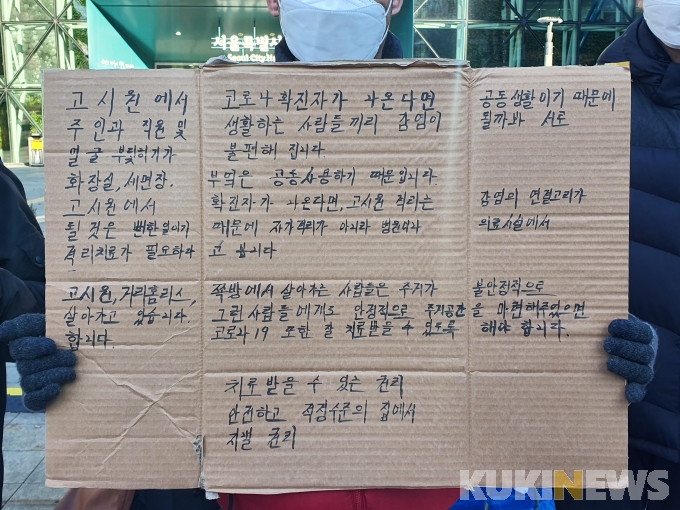 서울특별시
Seoul City Ha
고시원에서 코로나 확진자가 나온다면 공동생활이기 때문에
주인과 직원 및 생활하는 사람들끼리 감염이 될까봐 서로
얼굴 부딪히기가 불편해 집니다.
화장실, 세면장. 부엌은 공동사용하기 때문입니다.
고시원에서 확진자가 나온다면, 고시원 격리는 감염의 연결고리가
될 것은 뻔한일이기 때문에 자가격리가 아니라 병원이나 의료시설에서
격리치료가 필요하다고 봅니다
고시원, 거리홈리스, 쪽방에서 살아가는 사람들은 주거가 불안정적으로
살아가고 있습니다. 그런 사람들에게도 안정적으로 주거공간을 마련해주었으면
합니다. 코로나19 또한 잘 치료받을 수 있도록 해야 합니다.
치료받을 수 있는 권리
안전하고 적정수준의 집에서
지낼 권리
KUKINEWS